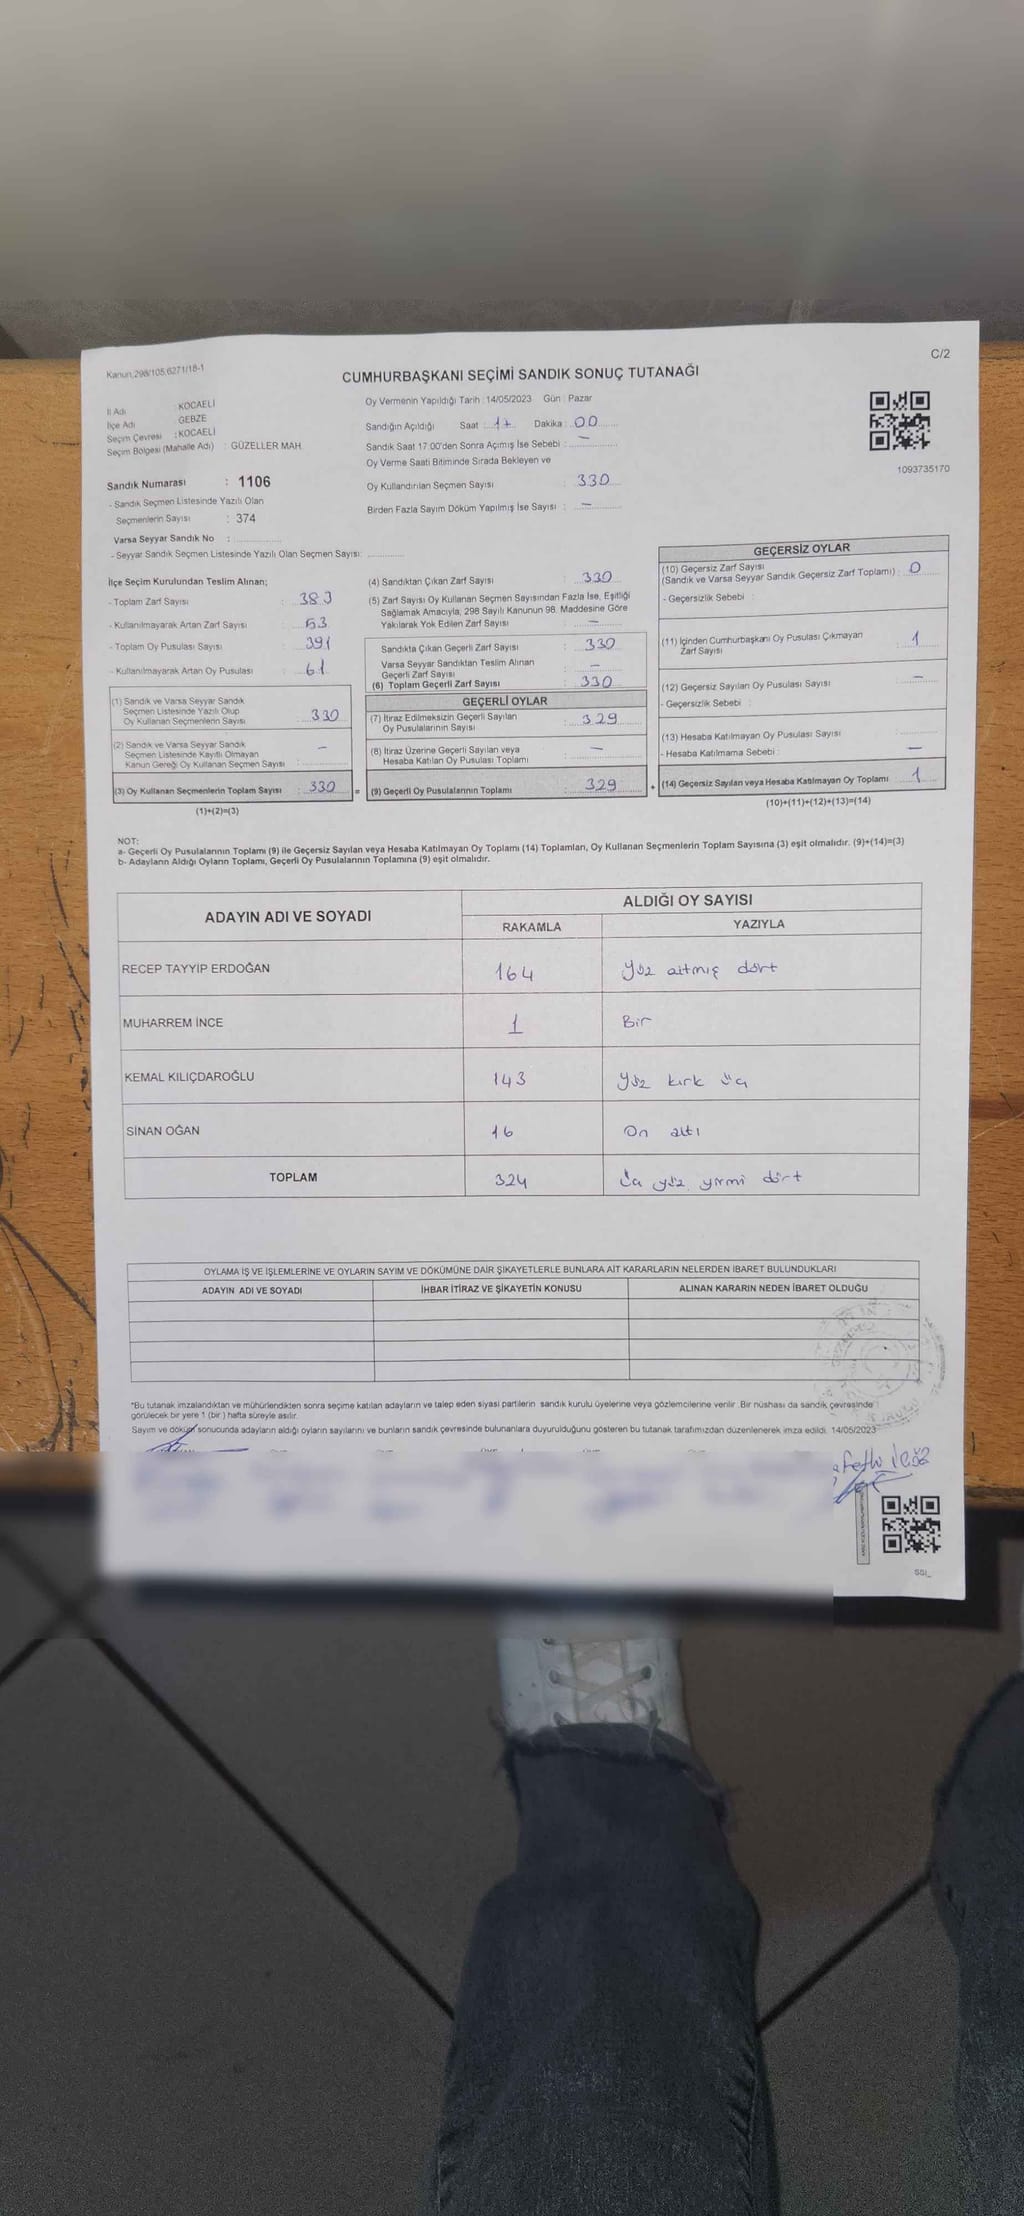 Kanun.298/105,6271/18-1
C/2
CUMHURBAŞKANI SEÇİMİ SANDIK SONUÇ TUTANAĞI
İl Adı : KOCAELİ
İlçe Adı : GEBZE
Seçim Çevresi : KOCAELİ
Seçim Bölgesi (Mahalle Adı) : GÜZELLER MAH.
Sandık Numarası : 1106
- Sandık Seçmen Listesinde Yazılı Olan
Seçmenlerin Sayısı : 374
Varsa Seyyar Sandık No :
- Seyyar Sandık Seçmen Listesinde Yazılı Olan Seçmen Sayısı:
Oy Vermenin Yapıldığı Tarih : 14/05/2023 Gün : Pazar
Sandığın Açıldığı Saat : 17 Dakika : 00
Sandık Saat 17:00'den Sonra Açımış İse Sebebi : —
Oy Verme Saati Bitiminde Sırada Bekleyen ve
Oy Kullandırılan Seçmen Sayısı : 330
Birden Fazla Sayım Döküm Yapılmış İse Sayısı : —
1093735170
İlçe Seçim Kurulundan Teslim Alınan;
- Toplam Zarf Sayısı : 383
- Kullanılmayarak Artan Zarf Sayısı : 53
- Toplam Oy Pusulası Sayısı : 391
- Kullanılmayarak Artan Oy Pusulası : 61
(1) Sandık ve Varsa Seyyar Sandık
Seçmen Listesinde Yazılı Olup
Oy Kullanan Seçmenlerin Sayısı : 330
(2) Sandık ve Varsa Seyyar Sandık
Seçmen Listesinde Kayıtlı Olmayan
Kanun Gereği Oy Kullanan Seçmen Sayısı : —
(3) Oy Kullanan Seçmenlerin Toplam Sayısı : 330 =
(1)+(2)=(3)
(4) Sandıktan Çıkan Zarf Sayısı : 330
(5) Zarf Sayısı Oy Kullanan Seçmen Sayısından Fazla İse, Eşitliği
Sağlamak Amacıyla, 298 Sayılı Kanunun 98. Maddesine Göre
Yakılarak Yok Edilen Zarf Sayısı : —
Sandıkta Çıkan Geçerli Zarf Sayısı : 330
Varsa Seyyar Sandıktan Teslim Alınan
Geçerli Zarf Sayısı : —
(6) Toplam Geçerli Zarf Sayısı : 330
GEÇERLİ OYLAR
(7) İtiraz Edilmeksizin Geçerli Sayılan
Oy Pusulalarının Sayısı : 329
(8) İtiraz Üzerine Geçerli Sayılan veya
Hesaba Katılan Oy Pusulası Toplamı : —
(9) Geçerli Oy Pusulalarının Toplamı : 329 +
GEÇERSİZ OYLAR
(10) Geçersiz Zarf Sayısı
(Sandık ve Varsa Seyyar Sandık Geçersiz Zarf Toplamı) : 0
- Geçersizlik Sebebi :
(11) İçinden Cumhurbaşkanı Oy Pusulası Çıkmayan
Zarf Sayısı : 1
(12) Geçersiz Sayılan Oy Pusulası Sayısı : —
- Geçersizlik Sebebi :
(13) Hesaba Katılmayan Oy Pusulası Sayısı :
- Hesaba Katılmama Sebebi : —
(14) Geçersiz Sayılan veya Hesaba Katılmayan Oy Toplamı : 1
(10)+(11)+(12)+(13)=(14)
NOT:
a- Geçerli Oy Pusulalarının Toplamı (9) ile Geçersiz Sayılan veya Hesaba Katılmayan Oy Toplamı (14) Toplamları, Oy Kullanan Seçmenlerin Toplam Sayısına (3) eşit olmalıdır. (9)+(14)=(3)
b- Adayların Aldığı Oyların Toplamı, Geçerli Oy Pusulalarının Toplamına (9) eşit olmalıdır.
ADAYIN ADI VE SOYADI
ALDIĞI OY SAYISI
RAKAMLA YAZIYLA
RECEP TAYYİP ERDOĞAN 164 Yüz altmış dört
MUHARREM İNCE 1 Bir
KEMAL KILIÇDAROĞLU 143 Yüz kırk üç
SİNAN OĞAN 16 On altı
TOPLAM 324 Üç yüz yirmi dört
OYLAMA İŞ VE İŞLEMLERİNE VE OYLARIN SAYIM VE DÖKÜMÜNE DAİR ŞİKAYETLERLE BUNLARA AİT KARARLARIN NELERDEN İBARET BULUNDUKLARI
ADAYIN ADI VE SOYADI İHBAR İTİRAZ VE ŞİKAYETİN KONUSU ALINAN KARARIN NEDEN İBARET OLDUĞU
*Bu tutanak imzalandıktan ve mühürlendikten sonra seçime katılan adayların ve talep eden siyasi partilerin sandık kurulu üyelerine veya gözlemcilerine verilir. Bir nüshası da sandık çevresinde
görülecek bir yere 1 (bir) hafta süreyle asılır.
Sayım ve döküm sonucunda adayların aldığı oyların sayılarını ve bunların sandık çevresinde bulunanlara duyurulduğunu gösteren bu tutanak tarafımızdan düzenlenerek imza edildi. 14/05/2023